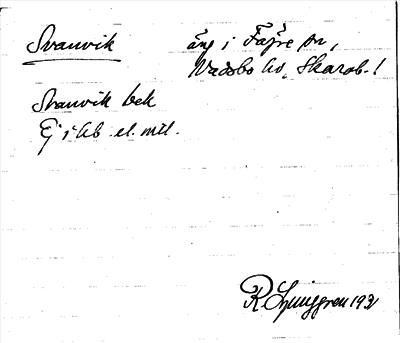 Svanvik
äng i Fågre sn,
Vadsbo hd, Skarab. l
Svanvik bek
Ej i hb el. mtl.
R Ljunggren 192